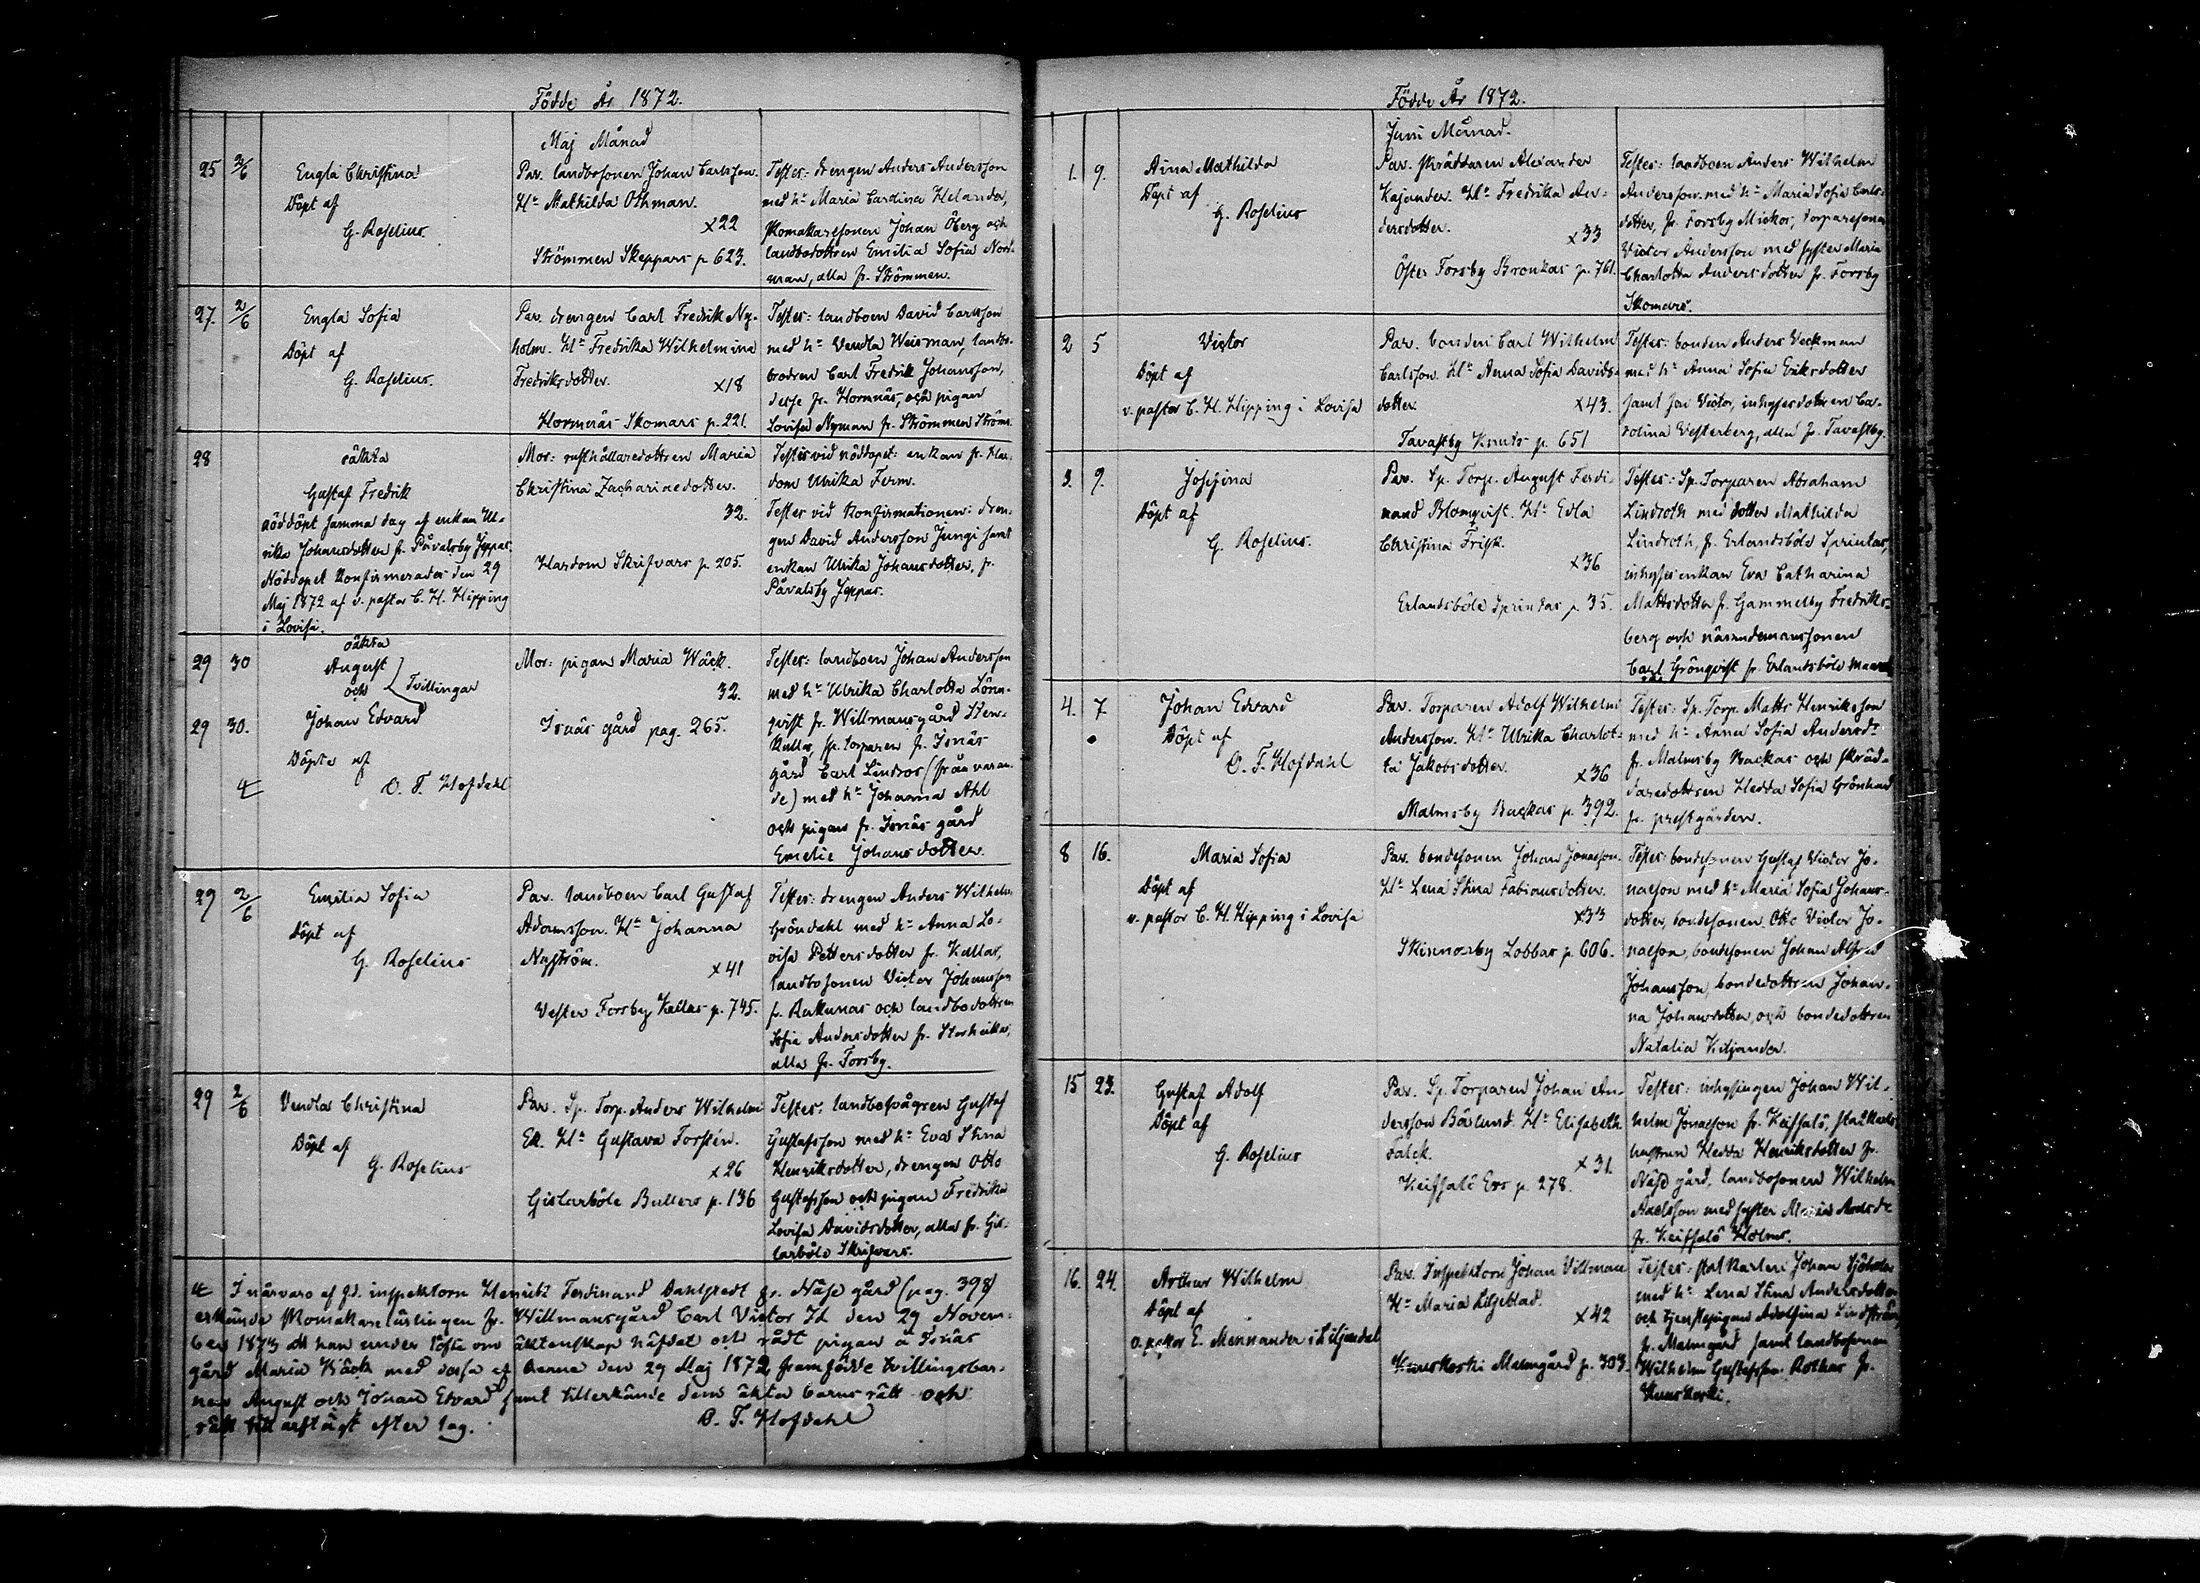 Födde År 1872.
Maj Månad
25 2/6 Engla Christina
Döpt af
G. Roselius
Par. landbosonen Johan Carlsson.
Hu Mathilda Othman.
x22
Strömmen Skeppars p 623.
Testes: drengen Anders Andersson
med hu Maria Carolina Helander,
skomakaresonen Johan Öberg och
landbodottren Emilia Sofia Nord-
man, alla fr. Strömmen.
27. 2/6 Engla Sofia
Döpt af
G. Roselius.
Par. drengen Carl Fredrik Ny-
holm. Hu Fredrika Wilhelmina
Fredriksdotter. x18
Hornnäs Skomars p. 221.
Testes: landboen David Carlsson
med hu Vendla Weisman, landbo-
brodren Carl Fredrik Johansson,
desse fr. Hornnäs, och pigan
Lovisa Nyman fr. Strömmen Ströms.
28 oäkta
Gustaf Fredrik
nöddöpt samma dag af enkan Ul-
rika Johansdotter fr. Påvalsby Jeppas.
Nöddopet konfirmerades den 29
Maj 1872 af v. pastor C. H. Hipping
i Lovisa.
Mor: rusthållaredottren Maria
Christina Zachariaedotter.
32.
Hardom Skrifvars p. 205.
Testes vid nöddopet: enkan fr. Har-
dom Ulrika Ferm.
Testes vid konfirmationen: dren-
gen David Andersson Jungi samt
enkan Ulrika Johansdotter, fr.
Påvalsby Jeppas.
oäkta
29 30 August
och Tvillingar
29 30. Johan Edvard
Döpte af
O. T. Hofdahl
Mor: pigan Maria Wäck.
32.
Isnäs gård pag. 265.
Testes: landboen Johan Andersson
med hu Ulrika Charlotta Lönn-
qvist fr. Willmansgård Sten-
kulla, sp. torparen fr. Isnäs
gård Carl Lindros (frånvaran-
de) med hu Johanna Ahl
och pigan fr. Isnäs gård
Emelie Johansdotter.
29 2/6 Emilia Sofia
Döpt af
G. Roselius
Par. landboen Carl Gustaf
Adamsson. Hu Johanna
Nyström. x41
Vester Forsby Kallas p. 745.
Testes: drengen Anders Wilhelm
Gröndahl med hu Anna Lo-
visa Pettersdotter fr. Kallas,
landbosonen Victor Johansson
fr. Rakunas och landbodottren
Sofia Andersdotter fr. Storheikas,
alla fr. Forsby.
29 2/6 Vendla Christina
Döpt af
G. Roselius
Par. Sp. Torp. Anders Wilhelm
Ek. Hu Gustava Forstén.
x26
Gislarböle Bullers p. 136
Testes: landbosvågren Gustaf
Gustafsson med hu Eva Stina
Henriksdotter, drengen Otto
Gustafsson och pigan Fredrika
Lovisa Davidsdotter, alla fr. Gis-
larböle Skrifvars.
I närvaro af fd. inspektorn Henrik Ferdinand Dahlstedt fr. Näse gård (pag. 398)
erkände skomakarelärlingen fr. Willmansgård Carl Victor Id den 29 Novem-
ber 1873 att han under löfte om äktenskap häfdat och rådt pigan å Isnäs
gård Maria Wäck med dessa af henne den 29 Maj 1872 framfödde tvillingsbar-
nen August och Johan Edvard samt tillerkände dem äkta barns rätt och
rätt till arf efter lag.
O. T. Hofdahl
Födde År 1872.
Juni Månad.
1. 9. Aina Mathilda
Döpt af
G. Roselius
Par. skräddaren Alexander
Kajander. Hu Fredrika An-
dersdotter. x33
Öster Forsby Bronkas p. 761.
Testes: landboen Anders Wilhelm
Andersson med hu Maria Sofia Carls-
dotter, fr. Forsby Mickos, torparesonen
Victor Andersson med syster Maria
Charlotta Andersdotter fr. Forsby
Skomars.
2 5 Victor
Döpt af
v. pastor C. H. Hipping i Lovisa
Par. bonden Carl Wilhelm
Carlsson. Hu Anna Sofia Davids-
dotter. x43.
Tavastby Knuts p. 651
Testes: bonden Anders Veckman
med hu Anna Sofia Eriksdotter
samt son Victor, inhysesdottren Ca-
rolina Vesterberg, alla fr. Tavastby.
3. 9. Josefina
Döpt af
G. Roselius.
Par. Sp. Torp. August Ferdi-
nand Blomqvist. Hu Edla
Christina Frisk.
x36
Erlandsböle Sprintas p. 35.
Testes: Sp. Torparen Abraham
Lindroth med dotter Mathilda
Lindroth, fr. Erlandsböle Sprintas,
inhysesenkan Eva Catharina
Mattsdotter fr. Gammelby Fredriks-
berg och nämndemanssonen
Carl Grönqvist fr. Erlandsböle
4. 7 Johan Edvard
Döpt af
O. T. Hofdahl
Par. Torparen Adolf Wilhelm
Andersson. Hu Ulrika Charlot-
ta Jakobsdotter. x36
Malmsby Backas p. 392.
Testes: Sp. Torp. Matts Henriksson
med hu Anna Sofia Andersdr
fr. Malmsby Backas och skräd-
daredottren Hedda Sofia Grönlund
fr. prestgården.
8 16. Maria Sofia
Döpt af
v. pastor C. H. Hipping i Lovisa
Par. bondesonen Johan Jonasson.
Hu Lena Stina Fabiansdotter.
x33
Skinnarby Lobbas p. 606.
Testes: bondesonen Gustaf Victor Jo-
nasson med hu Maria Sofia Johans-
dotter, bondesonen Otto Victor Jo-
nasson, bondesonen Johan Alfred
Johansson, bondedottren Johan-
na Johansdotter, och bondedottren
Natalia Kiljander.
15 23. Gustaf Adolf
Döpt af
G. Roselius
Par. Sp. Torparen Johan An-
dersson Bärlund. Hu Elisabeth
Falck. x31.
Keitsalö Ers p. 278.
Testes: inhysingen Johan Wil-
helm Jonasson fr. Keitsalö, statkarls
hustrun Hedda Henriksdotter fr.
Näse gård, landbosonen Wilhelm
Axelsson med syster Maria Axelsdr
fr. Keitsalö Holms.
16. 24. Arthur Wilhelm
Döpt af
v. pastor E. Mennander i Liljendal
Par. Inspektorn Johan Villman
Hu Maria Liljeblad.
x42
Kuuskoski Malmgård p. 303.
Testes: statkarlen Johan Sjöholm
med hu Lena Stina Andersdotter
och tjenstepigan Adolfina Lindström
fr. Malmgård samt landbosonen
Wilhelm Gustafsson Rothas fr.
Kuuskoski.